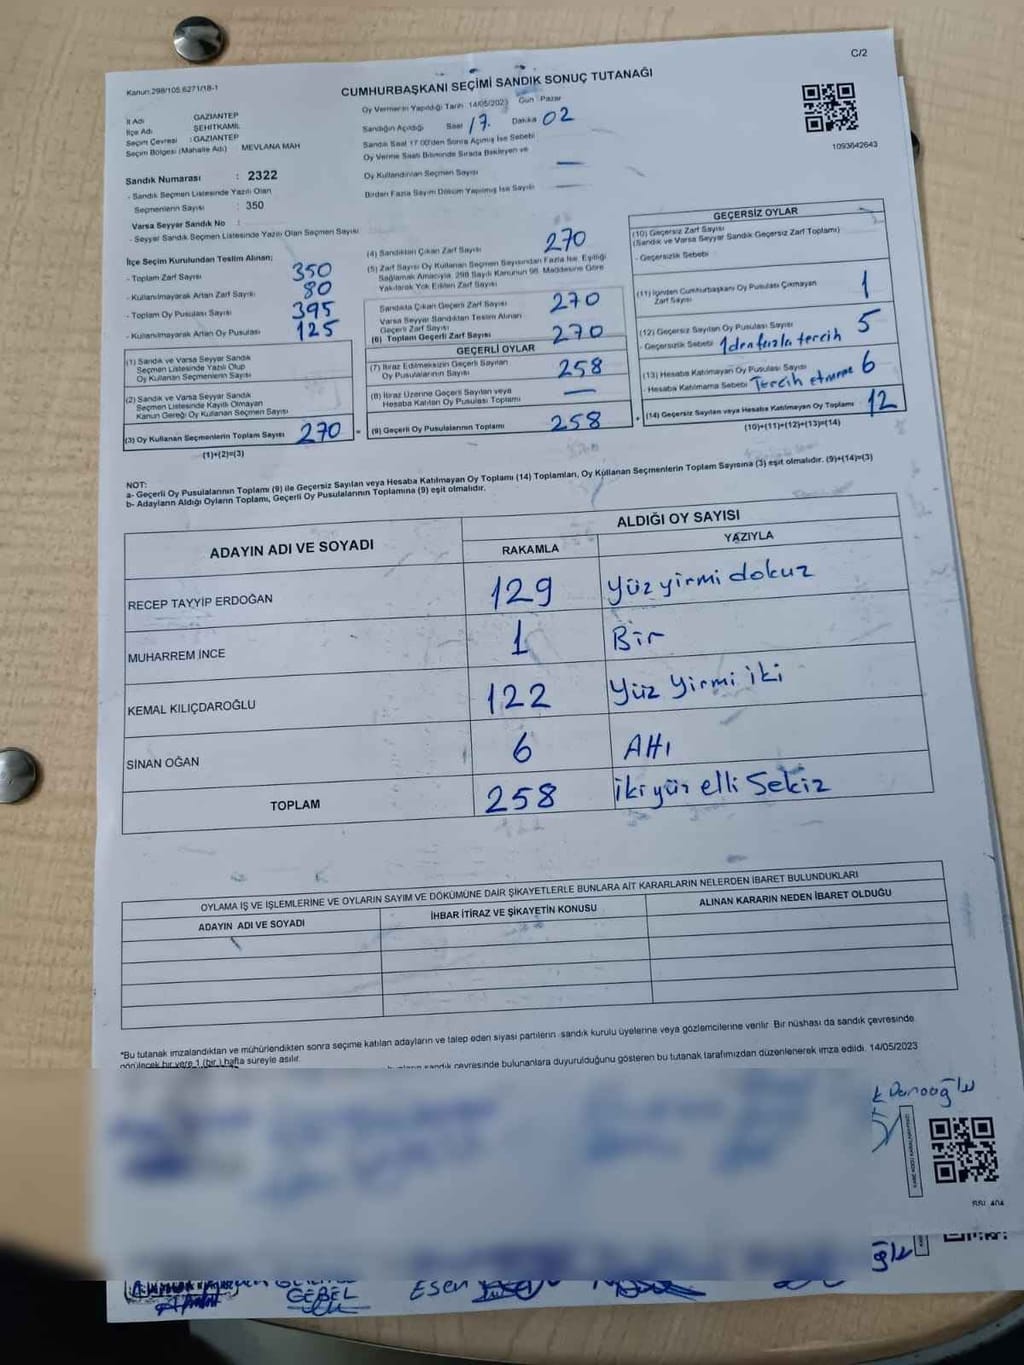 C/2
Kanun:298/105.6271/18-1
CUMHURBAŞKANI SEÇİMİ SANDIK SONUÇ TUTANAĞI
İl Adı GAZIANTEP
İlçe Adı ŞEHİTKAMİL
Seçim Çevresi : GAZİANTEP
Seçim Bölgesi (Mahalle Adı) MEVLANA MAH
Oy Vermenin Yapıldığı Tarih 14/05/2023 Gün Pazar
Sandığın Açıldığı Saat 17. Dakika 02
Sandık Saat 17:00'den Sonra Açılmış İse Sebebi
Oy Verme Saati Bitiminde Sırada Bekleyen ve
Oy Kullandırılan Seçmen Sayısı —
Birden Fazla Sayım Döküm Yapılmış İse Sayısı —
1093642643
Sandık Numarası : 2322
- Sandık Seçmen Listesinde Yazılı Olan
Seçmenlerin Sayısı : 350
Varsa Seyyar Sandık No :
- Seyyar Sandık Seçmen Listesinde Yazılı Olan Seçmen Sayısı
İlçe Seçim Kurulundan Teslim Alınan;
- Toplam Zarf Sayısı 350
- Kullanılmayarak Artan Zarf Sayısı 80
- Toplam Oy Pusulası Sayısı 395
- Kullanılmayarak Artan Oy Pusulası 125
(1) Sandık ve Varsa Seyyar Sandık
Seçmen Listesinde Yazılı Olup
Oy Kullanan Seçmenlerin Sayısı
(2) Sandık ve Varsa Seyyar Sandık
Seçmen Listesinde Kayıtlı Olmayan
Kanun Gereği Oy Kullanan Seçmen Sayısı
(3) Oy Kullanan Seçmenlerin Toplam Sayısı 270
(1)+(2)=(3)
(4) Sandıktan Çıkan Zarf Sayısı 270
(5) Zarf Sayısı Oy Kullanan Seçmen Sayısından Fazla İse, Eşitliği
Sağlamak Amacıyla, 298 Sayılı Kanunun 98. Maddesine Göre
Yakılarak Yok Edilen Zarf Sayısı
Sandıkta Çıkan Geçerli Zarf Sayısı 270
Varsa Seyyar Sandıktan Teslim Alınan
Geçerli Zarf Sayısı
(6) Toplam Geçerli Zarf Sayısı 270
GEÇERLİ OYLAR
(7) İtiraz Edilmeksizin Geçerli Sayılan
Oy Pusulalarının Sayısı 258
(8) İtiraz Üzerine Geçerli Sayılan veya
Hesaba Katılan Oy Pusulası Toplamı —
(9) Geçerli Oy Pusulalarının Toplamı 258
GEÇERSİZ OYLAR
(10) Geçersiz Zarf Sayısı
(Sandık ve Varsa Seyyar Sandık Geçersiz Zarf Toplamı)
- Geçersizlik Sebebi
(11) İçinden Cumhurbaşkanı Oy Pusulası Çıkmayan
Zarf Sayısı 1
(12) Geçersiz Sayılan Oy Pusulası Sayısı 5
- Geçersizlik Sebebi 1den fazla tercih
(13) Hesaba Katılmayan Oy Pusulası Sayısı 6
- Hesaba Katılmama Sebebi Tercih etmeme
(14) Geçersiz Sayılan veya Hesaba Katılmayan Oy Toplamı 12
(10)+(11)+(12)+(13)=(14)
NOT:
a- Geçerli Oy Pusulalarının Toplamı (9) ile Geçersiz Sayılan veya Hesaba Katılmayan Oy Toplamı (14) Toplamları, Oy Kullanan Seçmenlerin Toplam Sayısına (3) eşit olmalıdır. (9)+(14)=(3)
b- Adayların Aldığı Oyların Toplamı, Geçerli Oy Pusulalarının Toplamına (9) eşit olmalıdır.
ADAYIN ADI VE SOYADI
ALDIĞI OY SAYISI
RAKAMLA YAZIYLA
RECEP TAYYİP ERDOĞAN 129 Yüz yirmi dokuz
MUHARREM İNCE 1 Bir
KEMAL KILIÇDAROĞLU 122 Yüz Yirmi iki
SİNAN OĞAN 6 Altı
TOPLAM 258 iki yüz elli Sekiz
OYLAMA İŞ VE İŞLEMLERİNE VE OYLARIN SAYIM VE DÖKÜMÜNE DAİR ŞİKAYETLERLE BUNLARA AİT KARARLARIN NELERDEN İBARET BULUNDUKLARI
ADAYIN ADI VE SOYADI İHBAR İTİRAZ VE ŞİKAYETİN KONUSU ALINAN KARARIN NEDEN İBARET OLDUĞU
*Bu tutanak imzalandıktan ve mühürlendikten sonra seçime katılan adayların ve talep eden siyasi partilerin sandık kurulu üyelerine veya gözlemcilerine verilir. Bir nüshası da sandık çevresinde
görülecek bir yere 1 (bir) hafta süreyle asılır.
sandık çevresinde bulunanlara duyurulduğunu gösteren bu tutanak tarafımızdan düzenlenerek imza edildi. 14/05/2023
GEBEL
Esen